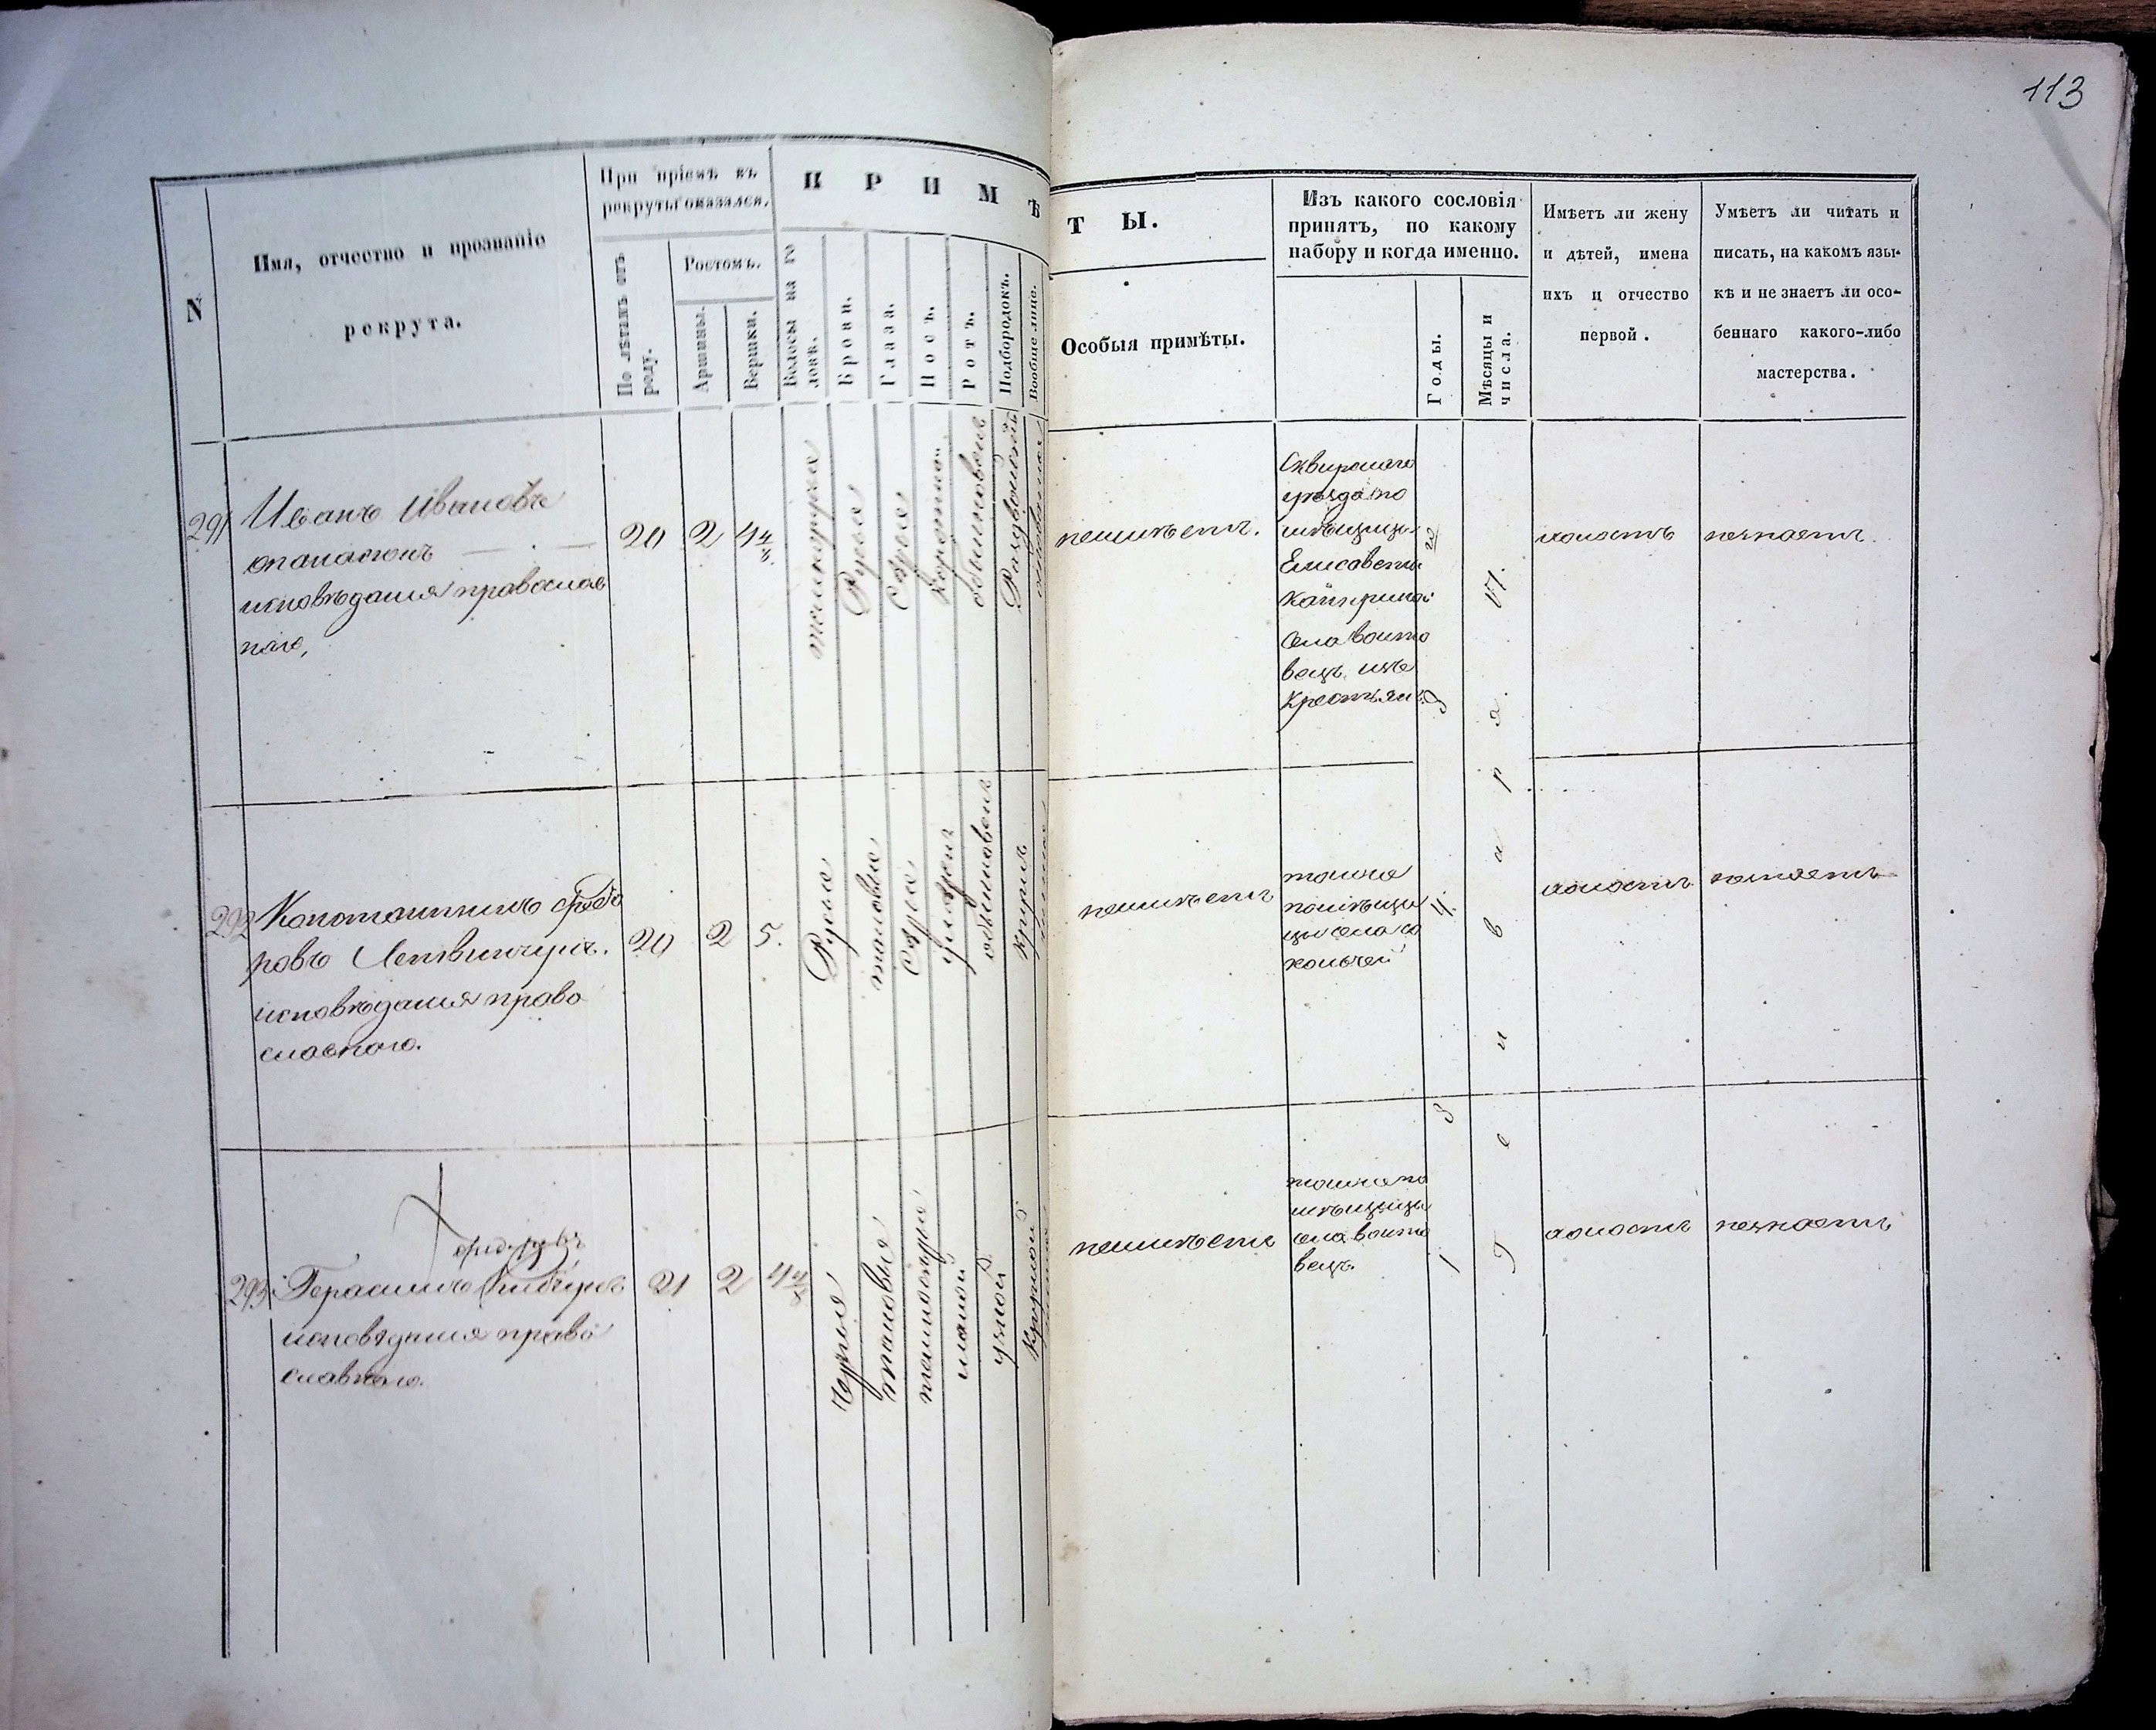 113
N
Имя, отчество и прозваніе
рекрута.
При пріемѣ въ
рекруты оказался.
По лѣтамъ отъ
роду.
Ростомъ.
Аршины.
Вершки.
ПРИМѢ
Волосы на го
ловѣ.
Брови.
Глаза.
Носъ.
Ротъ.
Подбородокъ.
Вообще лице.
ТЫ.
Особыя примѣты.
Изъ какого сословія
принятъ, по какому
набору и когда именно.
Годы.
Мѣсяцы и
числа.
Имѣетъ ли жену
и дѣтей, имена
ихъ и отчество
первой.
Умѣетъ ли читать и
писать, на какомъ язы-
кѣ и не знаетъ ли осо-
беннаго какого-либо
мастерства.
291
Иванъ Ивановъ
исповѣданія православ
наго,
20
2
4 4/8
темнорусые
Русые
Сѣрые
Обыкновен
Раздвоенный
неимѣетъ.
Сквирскаго
уѣзда по
мѣщицы
Елисаветы
села Войто
вецъ изъ
Крестьян
холостъ
незнаетъ.
292
Константинъ Ѳедо
ровъ
исповѣданія право
славнаго.
20
2
5.
Русые
таковые
Сѣрые
умѣрен
обыкновен
кругл
неимѣетъ
тойже
помѣщи
цы села
холостъ
незнаетъ
293
Герасимъ
исповѣданія право
славнаго.
21
2
4 4/8
Черные
таковые
малой
узкой
Круглой
неимѣетъ
тойже по
мѣщицы
села Войто
вецъ.
Генваря
холостъ
незнаетъ